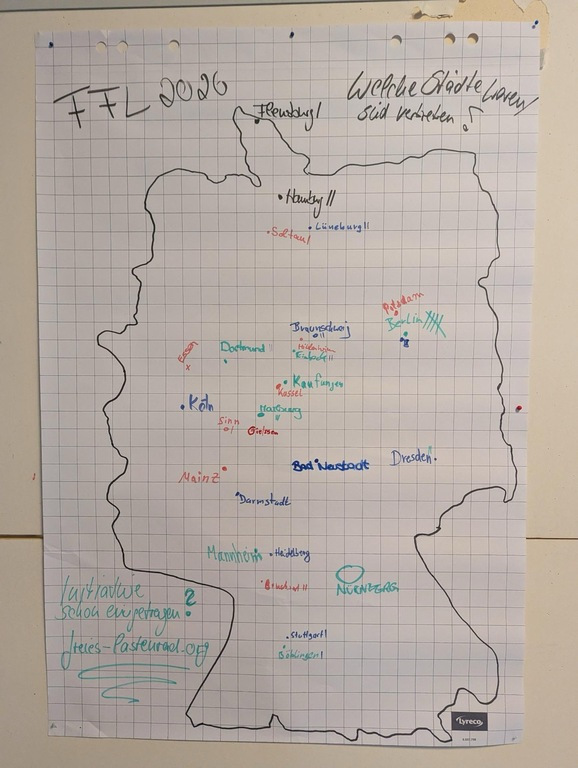 FFL 2026
Welche Städte waren/
sind vertreten?!
Flensburg I
Hamburg II
Lüneburg II
Soltau I
Potsdam
Berlin
Braunschweig
Hildesheim
Einbeck II
Essen
Dortmund II
Kaufungen
Kassel
Köln
Marburg
II
Sinn
Giessen
Bad Neustadt
Dresden
Mainz
Darmstadt
Mannheim
Heidelberg
Bruchsal II
NÜRNBERG
Initiative
schon eingetragen?
freies-Lastenrad.org
Stuttgart I
Böblingen I
Lyreco